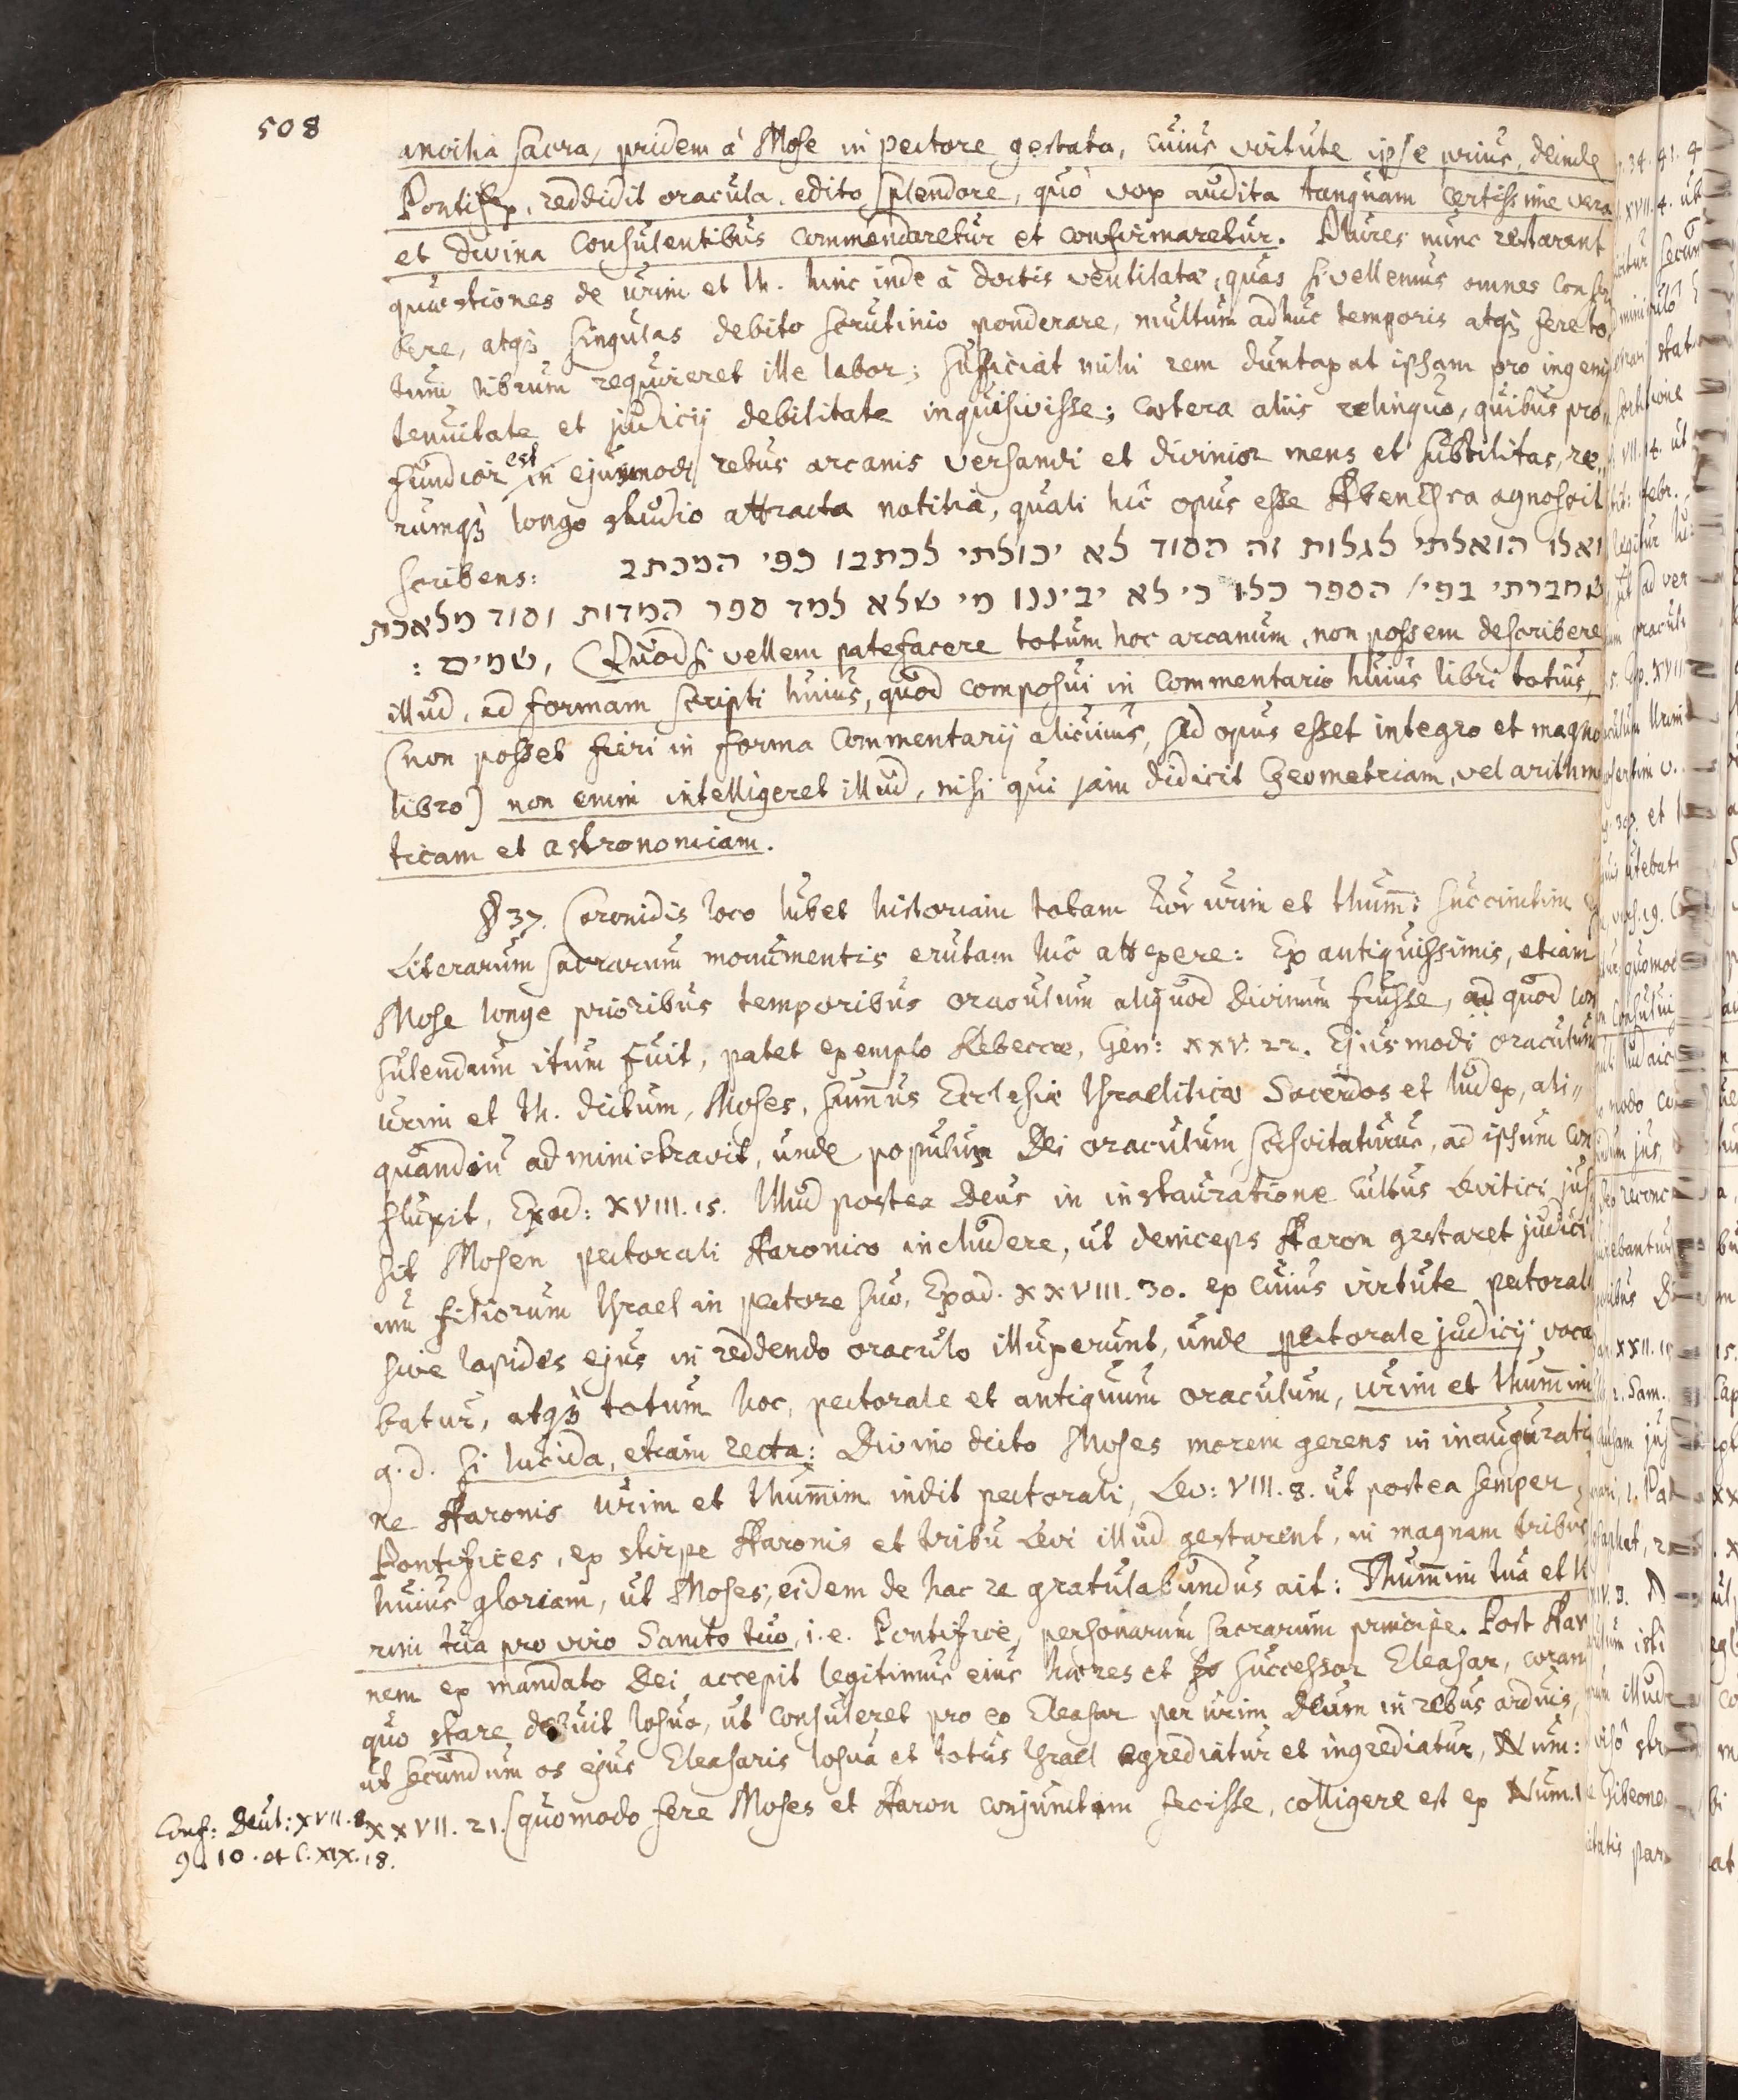 508
ancilia sacra, pridem à Mose in pectore gestata, cuius virtute ipse prius, deinde
Pontifex, reddidit oracula, edito splendore, quò vox audita tanquam certissime vera
et divina consulentibus commendaretur et confirmaretur. Plures nunc restarant
quæstiones de urim et th. hinc inde à doctis ventilatæ, quas si vellemus omnes
bere, atq3 singulas debito scrutinio ponderare, multum adhuc temporis atq3 fere to
tum librum requireret ille labor; sufficiat mihi rem duntaxat ipsam pro ingenij
tenuitate et judicij debilitate inquisivisse; cætera aliis relinquo, quibus pro„
fundior est in ejusmodi rebus arcanis versandi et divinior mens et subtilitas, re„
rumq3 longo studio attracta notitia, quali hic opus esse Aben Esra agnoscit
scribens: ואלו הואלתי לגלות זה הסוד לא יכולתי לכתבו כפי המכתב
שחברתי בפי׳ הספר כלו כי לא יביננו מי שלא למד ספר המדות וסוד מלאכת
שמים : , (Quod si vellem patefacere totum hoc arcanum, non possem describere
illud, ad formam scripti huius, quod composui in commentario huius libri totius,
(non posset fieri in forma commentarij alicuius, sed opus esset integro et magno
libro) non enim intelligeret illud, nisi qui jam didicit Geometriam, vel arithme
ticam et astronomiam.
§ 37. Coronidis loco lubet historiam totam τῶν urim et thum̄: succinctim
Literarum sacrarum monumentis erutam hic attexere: Ex antiquissimis, etiam
Mose longe prioribus temporibus oraculum aliquod divinum fuisse, ad quod con
sulendum itum fuit, patet exemplo Rebeccæ, Gen: XXV. 22. Ejusmodi oraculum
urim et th. dictum, Moses, sum̄us Ecclesiæ Israeliticæ Sacerdos et Iudex, ali„
quandiu administravit, unde populus Dei oraculum sciscitaturus, ad ipsum con
fluxit, Exod: XVIII. 15. Illud postea Deus in instauratione cultus Levitici jus
sit Mosen pectorali Aaronico includere, ut deinceps Aaron gestaret judici
um filiorum Israel in pectore suo, Exod. XXVIII. 30. ex cuius virtute pectorale
sive lapides ejus in reddendo oraculo illuxerunt, unde pectorale judicij voca
batur, atq3 totum hoc, pectorale et antiquum oraculum, urim et thum̄im
q. d. si lucida, etiam recta: Divino dicto Moses morem gerens in inauguratio
ne Aaronis urim et thum̄im indit pectorali, Lev: VIII. 8. ut postea semper
Pontifices, ex stirpe Aaronis et tribu Levi illud gestarent, in magnam tribus
huius gloriam, ut Moses, eidem de hac re gratulabundus ait: Thum̄im tua et U
rim tua pro viro Sancto tuo, i. e. Pontifice, personarum sacrarum principe. Post Aaro
nem ex mandato Dei accepit legitimus eius hæres et successor Eleasar, coram
quo stare debuit Iosua, ut consuleret pro eo Eleasar per urim Deum in rebus arduis,
ut secundum os ejus Eleasaris Iosua et totus Israel egrediatur et ingrediatur, Num:
XXVII. 21. (quomodo fere Moses et Aaron conjunctim fecisse, colligere est ex Num.
Conf: Deut: XVII. 8.
9. 10. et C. XIX. 18.